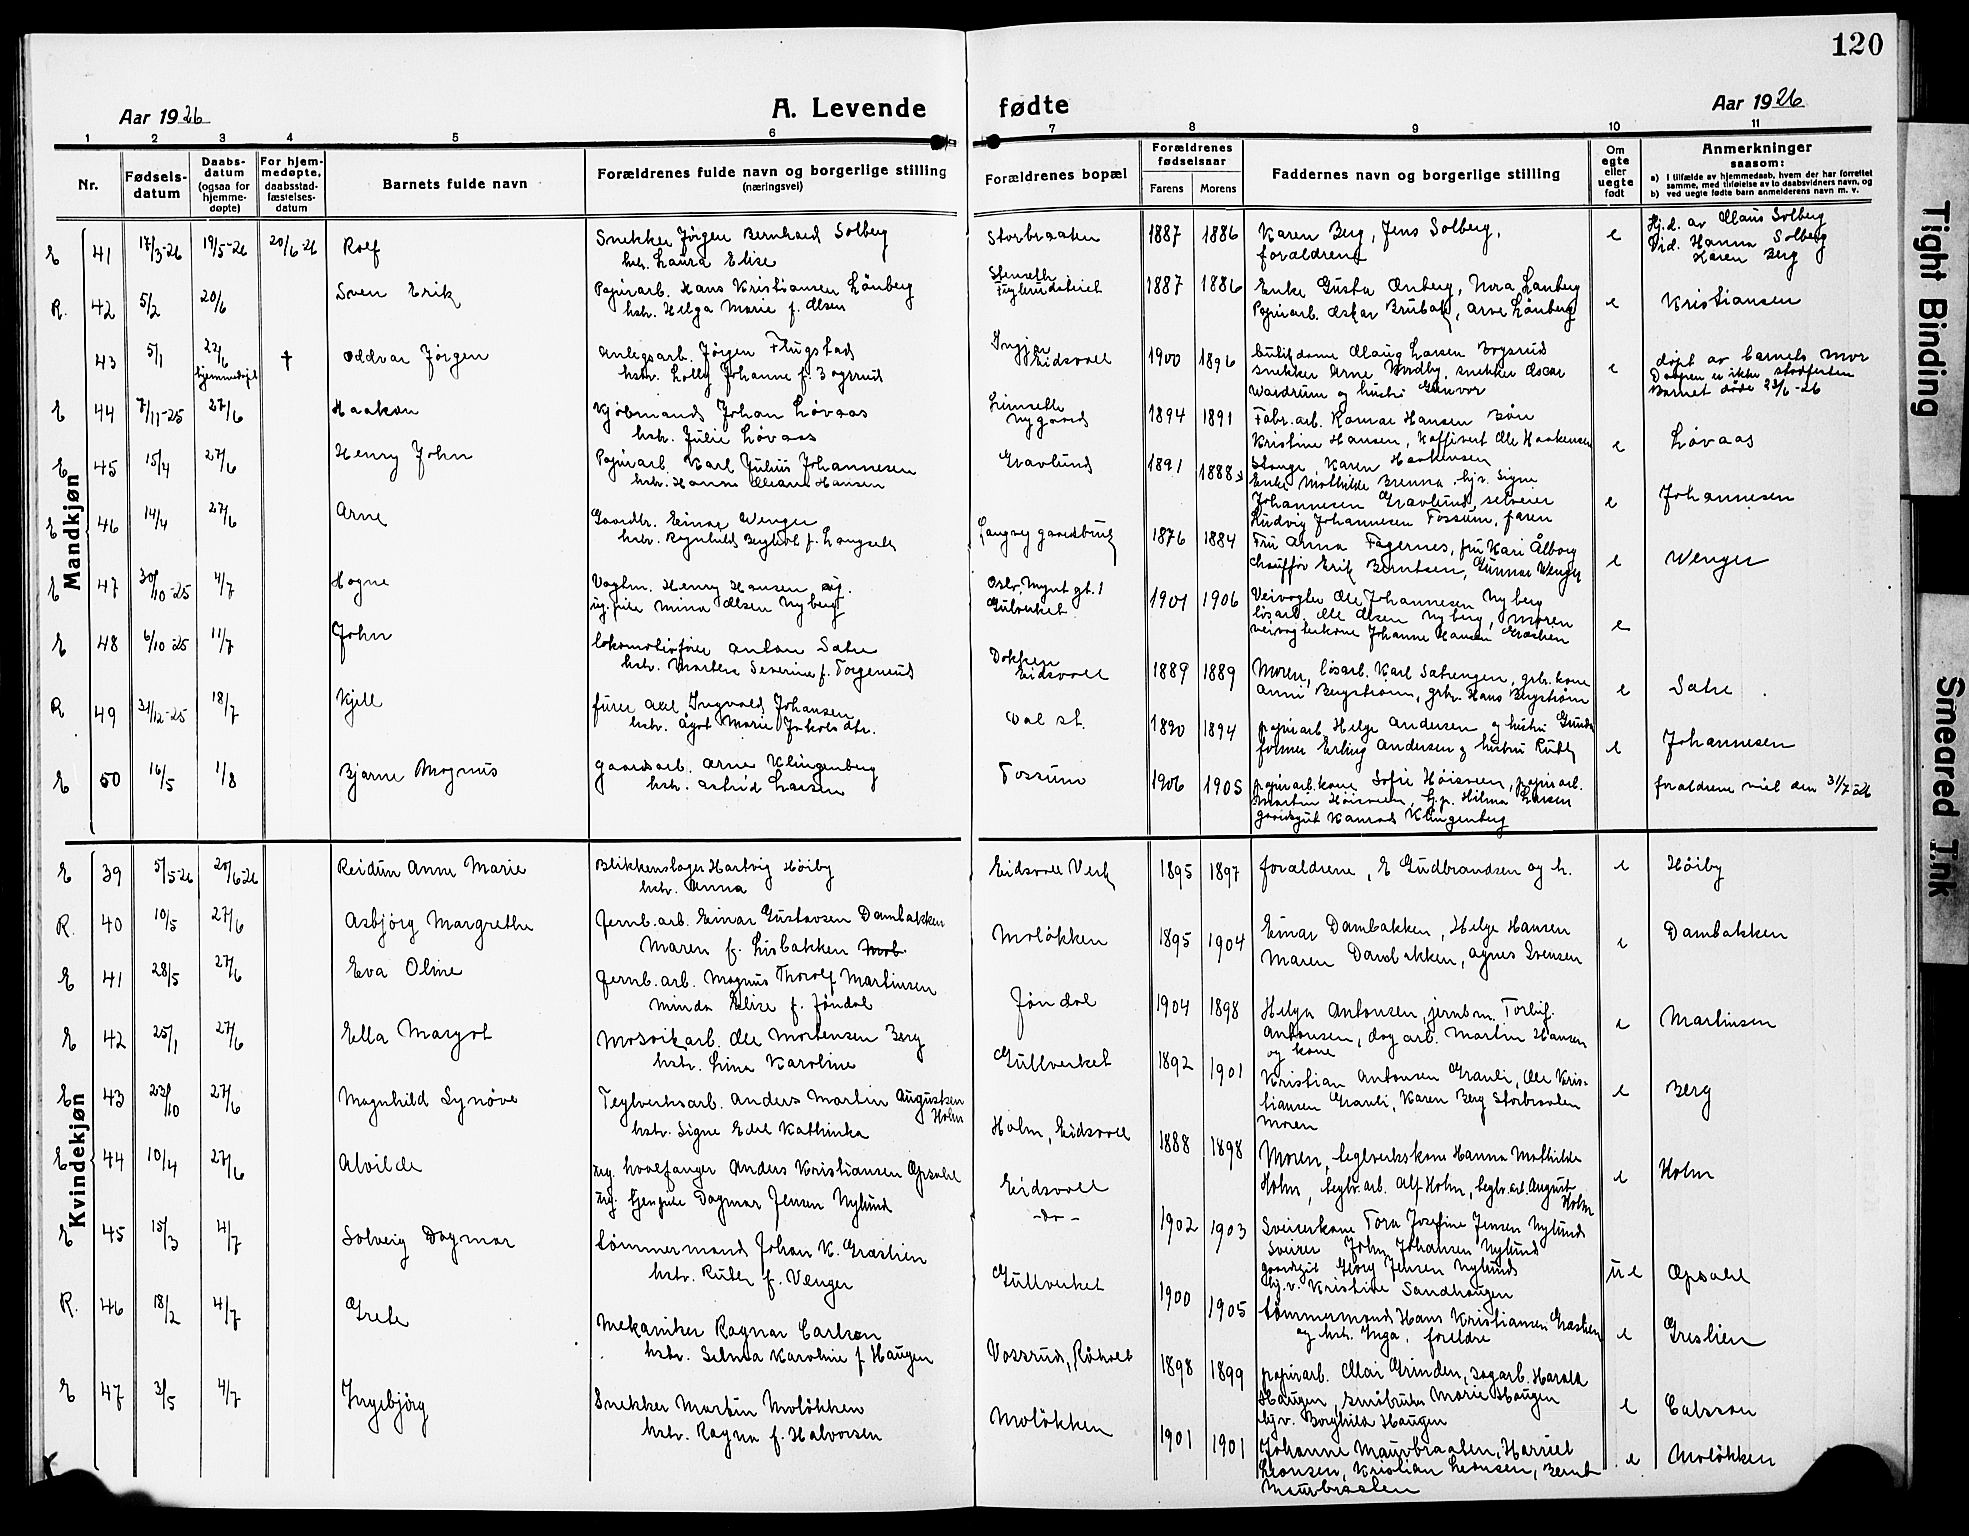 120
Aar 1926
A. Levende fødte
Aar 1926
1 2 3 4 5 6 7 8 9 10 11
Nr.
Fødsels-
datum
Daabs-
datum
(ogsaa for
hjemme-
døpte)
For hjem-
medøpte,
daabsstad-
fæstelses-
datum
Barnets fulde navn
Forældrenes fulde navn og borgerlige stilling
(næringsvei)
Forældrenes bopæl
Forældrenes
fødselsaar
Farens Morens
Faddernes navn og borgerlige stilling
Om
egte
eller
uegte
født
Anmerkninger
saasom:
a) I tilfælde av hjemmedaab, hvem der har forrettet
samme, med tilføielse av to daabsvidners navn, og
b) ved uegte fødte barn anmelderens navn m. v.
Mandkjøn
E 41 17/3-26 19/5-26 20/6-26 Rolf
Snekker Jørgen Bernhard Solberg
hstr. Laura Elise
Storbraaten 1887 1886
Karen Berg, Jens Solberg,
forældrene
e
Hj.d. av Claus Solberg
Vid. Hanna Solberg
Karen Berg
R. 42 5/2 20/6 Sven Erik
Papirarb. Hans Kristiansen Lönberg
hstr. Helga Marie f. Olsen
1887 1886
Enke Gusta Enberg, Nora Lönberg
Papirarb. Oskar Brubak, Arne Lönberg
e Kristiansen
43 5/1 22/6 hjemmedøpt † Oddvar Jörgen
Anlegsarb. Jörgen Flugstad
hstr. Lolly Johanne f. Bøgsrud
Eidsvoll 1900 1896
snekker Arne Nordby, snekker Oscar
Wardrum og hustru Gunvor
e
døpt av barnets mor
Daapen er ikke stadfestet
Barnet døde 23/1-26
E 44 7/11-25 27/6 Haakon
Kjöbmand Johan Lövaas
hstr. Julie Lövaas
Nygaard 1894 1891
Fabr.arb. Ragnar Hansen Bön
Kristine Hansen, Kaffivert Ole Haakensen
Stange, Karen Haakensen
e Lövaas
E 45 15/4 27/6 Henry John
Papirarb. Karl Julius Johannesen
hstr. Hanna Oleana Hansen
Gravlund 1891 1888
Enke Mathilde Brenna, hj.v. Signe
Johannesen Gravlund, selveier
Ludvig Johannesen Fossum, faren
e Johannesen
E 46 14/4 27/6 Arne
Gaardbr. Einar Wenger
hstr. Ragnhild Bergljot f. Langseth
Langseg gaardbruk 1876 1884
Fru Anna Fagernes, fru Kari Ålborg
Chauffør Erik Berntsen, Gunnar Wenger
e Wenger
E 47 30/10-25 4/7 Hogne
Vogtm. Henry Hansen og
ug. pike Mina Olsen Nyberg
Oslo, Mynt gt. 1
Gulverket
1901 1906
Veivogter Ole Johannesen Nyberg
løsarb. Ole Olsen Nyberg, moren
veivogterkone Johanne Hansen Græslien
e
E 48 6/10-25 11/7 John
Lokomotivfører Anton Sætre
hstr. Marthea Severine f. Torgerrud
Dokken
Eidsvoll
1889 1889
Moren, løsarb. Karl Sætrengen, grbr. kone
Anni Bergstrøm, grbr. Hans Bergstrøm
e Sætre
R 49 31/12-25 18/7 Kjell
fører Axel Ingvald Johansen
hstr. Agot Marie Jakobsdtr.
Dal st. 1890 1894
papirarb. Helge Andersen og hustru Gunda
former Erling Andersen og hustru Ruth
e Johannesen
E 50 16/5 1/8 Bjarne Magnus
gaardsarb. Arne Klingenberg
hstr. Astrid Larsen
Fossum 1906 1905
papirarb.kone Sofie Höisveen, papirarb.
Martin Höisveen, hj.p. Hilma Larsen
gaardsgut Konrad Klingenberg
foraldrene viet den 31/7-26
Kvindekjøn
E 39 5/5-26 20/6-26 Reidun Anne Marie
Blikkenslager Hartvig Höiby
hstr. Anna
Eidsvoll Verk 1895 1897
forældrene, E Gudbrandsen og h.
e Höiby
R. 40 10/5 27/6 Asbjörg Margrethe
Jernb.arb. Einar Gustavsen Dambakken
Maren f. Lisbakken
Molökken 1895 1904
Einar Dambakken, Helge Hansen
Maren Dambakken, Agnes Svensen
e Dambakken
E 41 28/5 27/6 Eva Oline
Jernb.arb. Magnus Thorolf Martinsen
Minda Elise f. Jöndal
Jöndal 1904 1898
Helga Antonsen, jernbm. Torleif
Antonsen, dag arb. Martin Hansen
og kone
e Martinsen
E 42 25/1 27/6 Ella Margot
Mosvikarb. Ole Mortensen Berg
hstr. Lina Karoline
Gullverket 1892 1901
Kristian Antonsen Granli, Ole Kris-
tiansen Granli, Karen Berg Storbraaten
Moren
e Berg
E 43 23/10 27/6 Magnhild Synöve
Teglverksarb. Anders Martin Augustsen
Holm
hstr. Signe Edel Kathinka
Holm, Eidsvoll 1888 1898
Moren, teglverkskone Hanna Mathilde
Holm, teglv.arb. Alf Holm, teglv.arb. August
Holm
e Holm
E 44 10/4 27/6 Alvilde
ug. hvalfanger Anders Kristiansen Opsahl
ug. tjenpike Dagmar Jensen Nylund
Eidsvoll
-do-
1902 1903
Sveiserkone Tora Josefine Jensen Nylund
Sveiser John Johansen Nylund
gaardsgt Georg Jensen Nylund
hj.v. Kristine Sandhaugen
ue Opsahl
E 45 15/3 4/7 Solveig Dagmar
tömmermand Johan K. Græslien
hstr. Ruth f. Venger
Gullverket 1900 1905
tömmermand Hans Kristiansen Græslien
og hstr. Inga, foreldre
e Greslien
R. 46 18/2 4/7 Grete
Mekaniker Ragnar Carlson
hstr. Selma Karoline f. Haugen
Vossrud, Råholt 1898 1899
papirarb. Olai Grinden, dagarb. Harald
Haugen, småbruker Marie Haugen
hj.v. Borghild Haugen
e Carlsson
E 47 3/5 4/7 Ingebjörg
Snekker Martin Molökken
hstr. Ragna f. Halvorsen
Molökken 1901 1901
Johanne Maurbraaten, Harriet
Leonsen, Kristian Leonsen, Bernt
Maurbraaten
e Molökken
Tight Binding
Smeared Ink